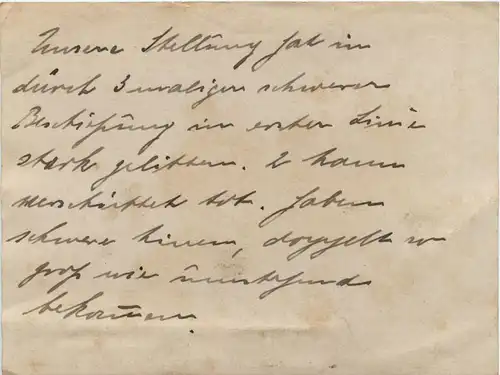 Unsere Stellung hat in
durch 3 maliger schwerer
Beschießung in erster Linie
stark gelitten. 2 Mann
verschüttet tot. Haben
schwere Minen, doppelt so
groß wie
bekommen.